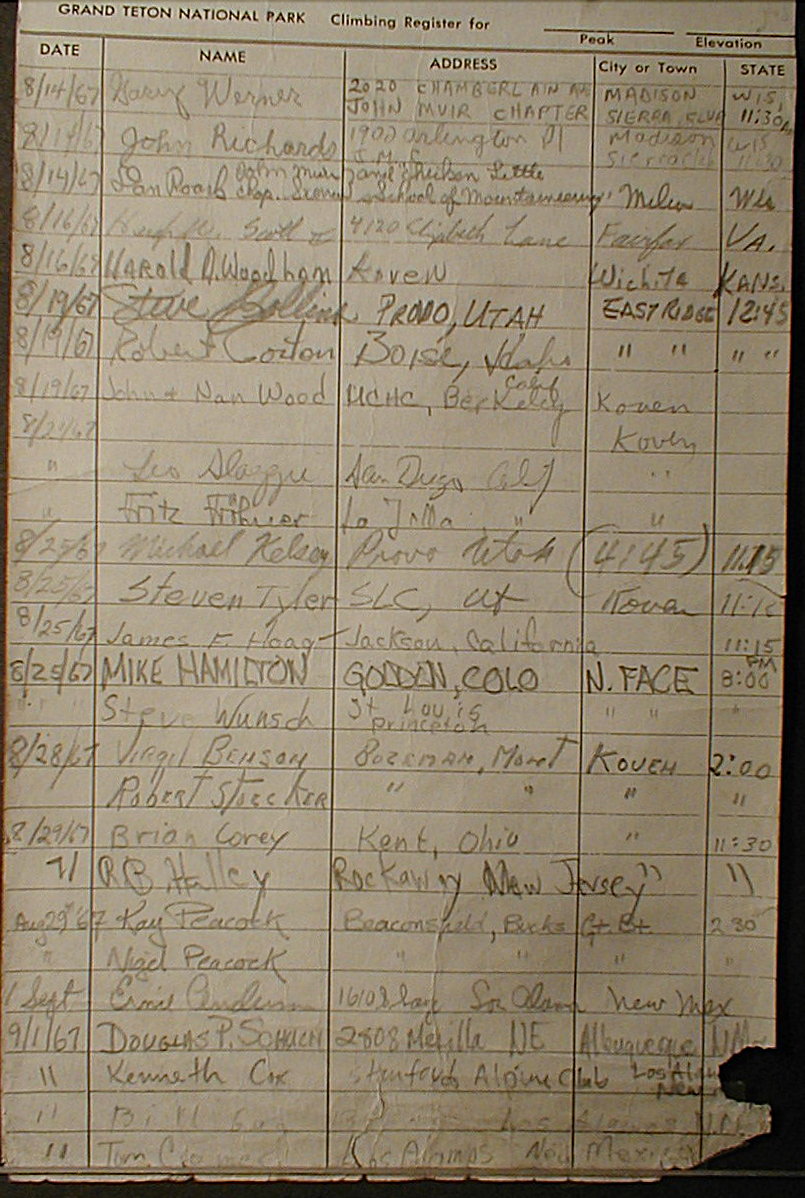 GRAND TETON NATIONAL PARK Climbing Register for
Peak Elevation
DATE NAME ADDRESS City or Town STATE
8/14/67 Harry Werner 2020 CHAMBERLAIN AVE MADISON WIS,
JOHN MUIR CHAPTER SIERRA CLUB 11:30
8/14/67 John Richards 1902 Arlington Pl Madison WIS
J. M. Sierra Club 11:30
8/14/67 Dan Roach John Muir
Chap. School of Mountaineering" Milw Wis
8/16/67 Scott 4120 Elizabeth Lane Fairfax VA.
8/16/67 HAROLD D. Woodham KOVEN Wichita KANS.
8/19/67 Steve PROVO, UTAH EAST RIDGE 12:45
8/19/67 Robert Boise, Idaho " " " "
8/19/67 John + Nan Wood UCHC, Berkeley Calif Koven
Koven
" Leo San Diego Calif "
" Fritz La Jolla " "
8/25/67 Michael Kelsey Provo Utah (4:45) 11:15
8/25/67 Steven Tyler SLC, Ut Koven 11:15
8/25/67 James F. Hoag Jackson, California 11:15
8/25/67 MIKE HAMILTON GOLDEN, COLO N. FACE 8:00 PM
" " Steve Wunsch St Louis " " "
Princeton
8/28/67 Virgil Benson BOZEMAN, Mont KOVEN 2:00
Robert Stoecker " " " "
8/29/67 Brian Corey Kent, Ohio " 11:30
" RB Halley Rockaway New Jersey " "
Aug 29th '67 Kay Peacock Beaconsfield, Bucks Gt. Bt. 2 30
" Nigel Peacock " " " "
1 Sept Ernie Anderson Los Alamos New Mex
9/1/67 DOUGLAS P. 2808 Mesilla NE Albuquerque NM
" Kenneth Cox Stanford Alpine Club Los Alamos
New
" Bill Los Alamos N.M.
" Tom Los Alamos New Mexico